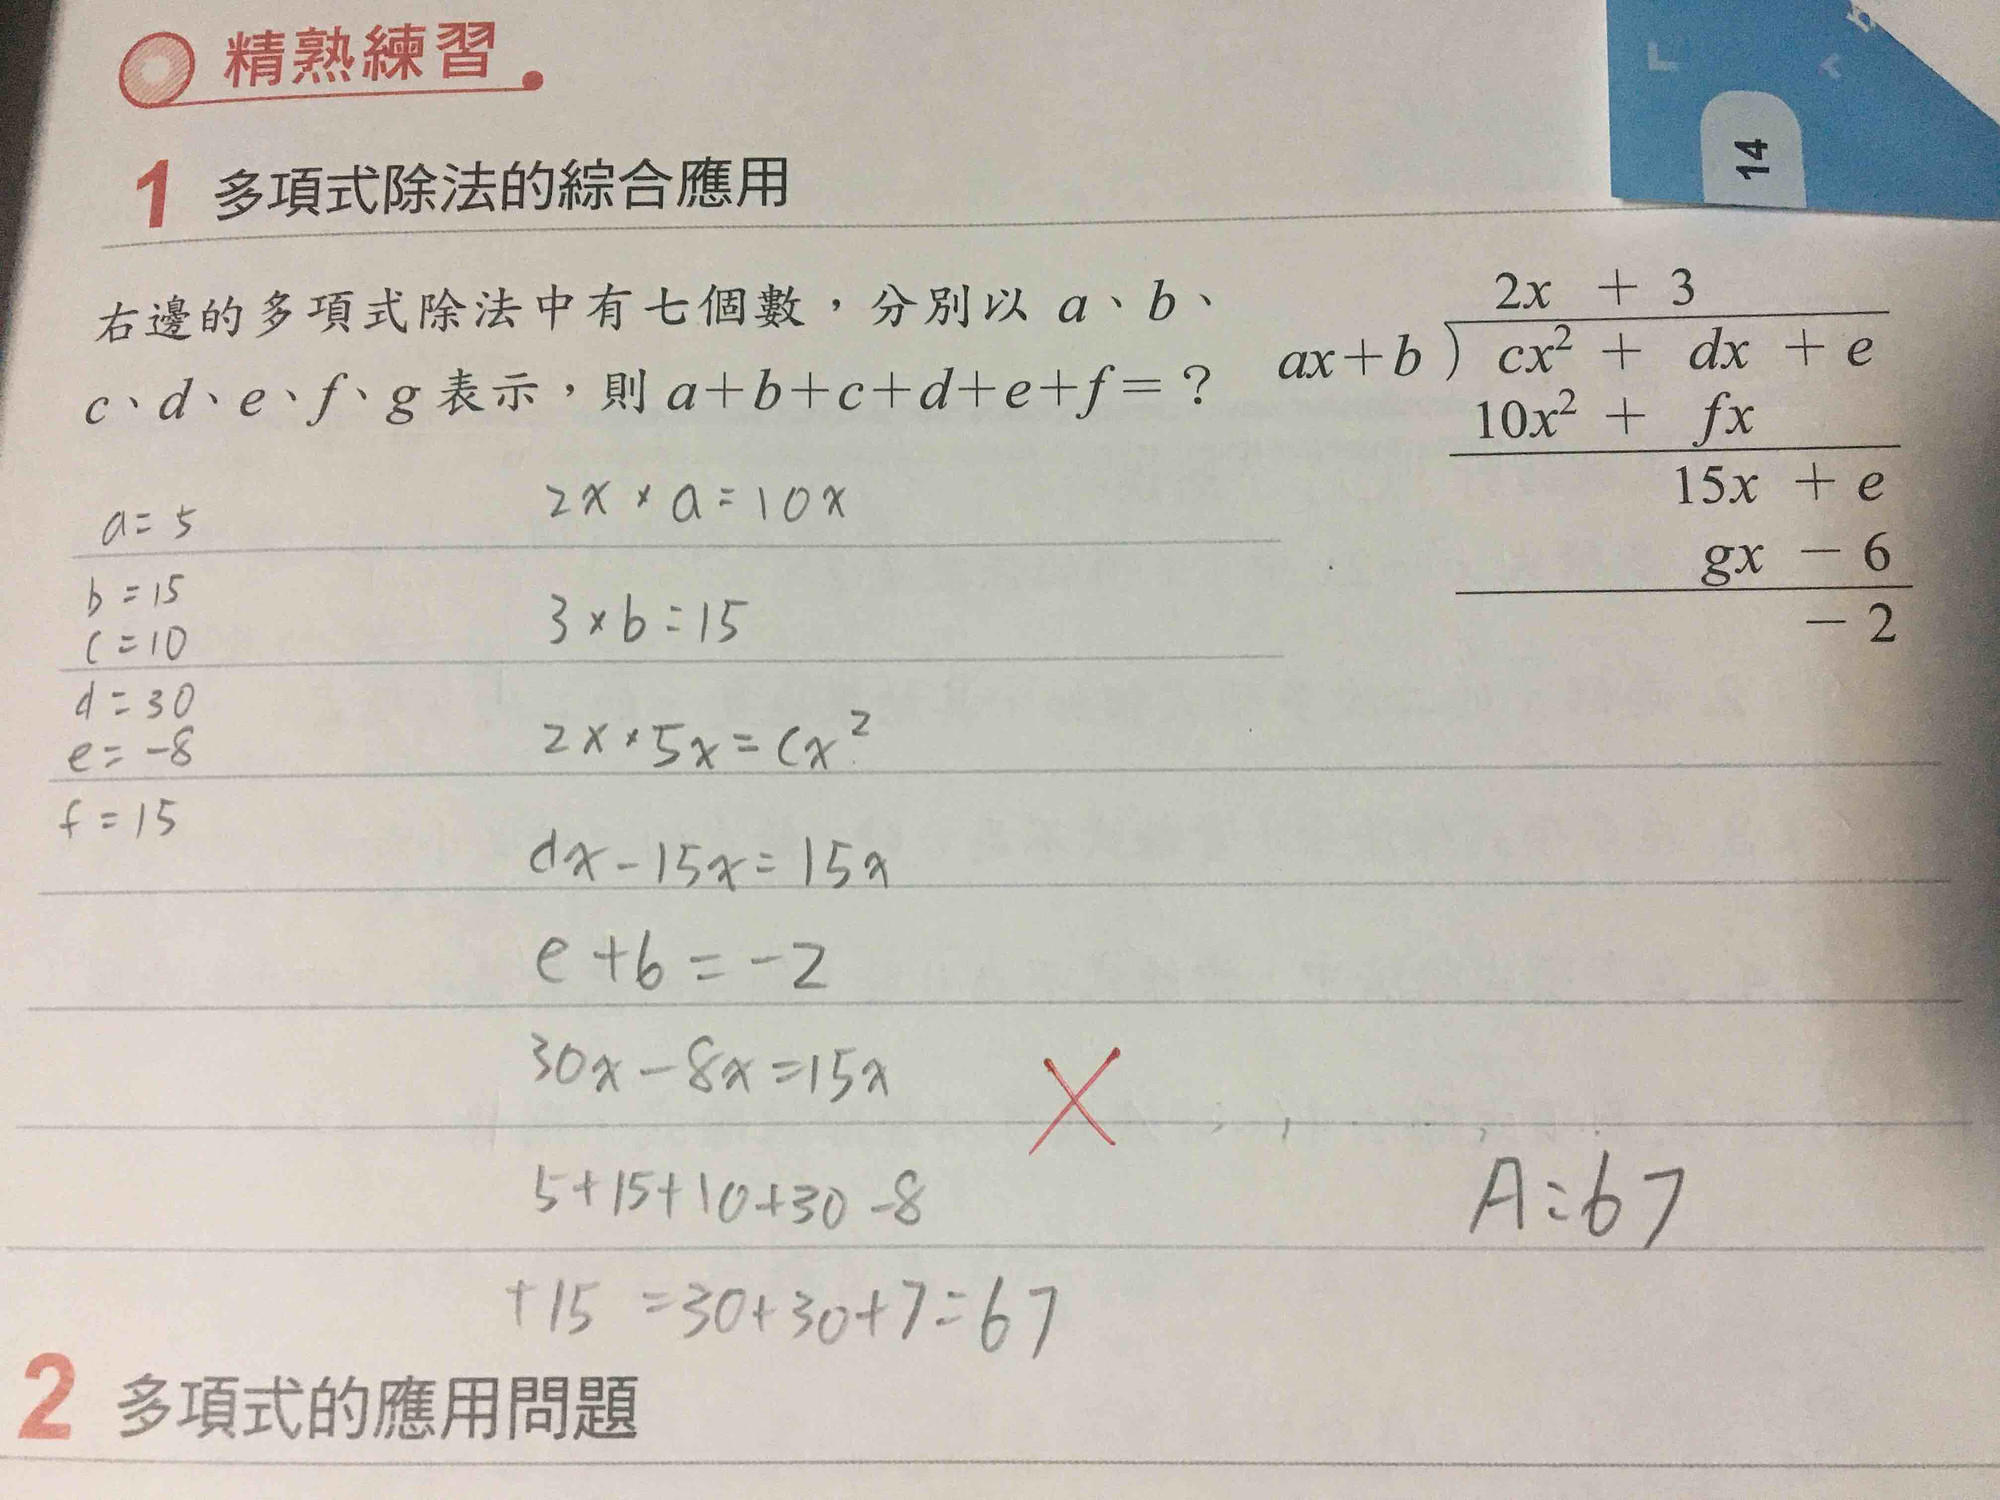 精熟練習
14
1 多項式除法的綜合應用
右邊的多項式除法中有七個數，分別以 a、b、
c、d、e、f、g 表示，則 a+b+c+d+e+f=？
2x + 3
ax+b ) cx² + dx + e
10x² + fx
15x + e
gx － 6
－ 2
a=5
b=15
c=10
d=30
e=-8
f=15
2x×a=10x
3×b=15
2x×5x=cx²
dx-15x=15x
e+6=-2
30x-8x=15x
5+15+10+30-8
+15 =30+30+7=67
A=67
2 多項式的應用問題